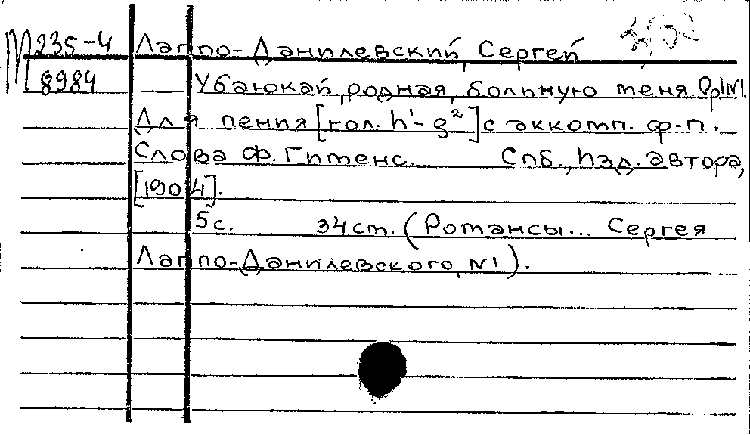 М 235-4 Лаппо-Данилевский, Сергей
8984 Убаюкай, родная, больную меня. Op. 1 N1.
Для пения [гол. h¹-g²] с аккомп. ф-п.
Слова Ф. Гитенс. Спб., Изд. автора,
[1904].
5 с. 34 см. (Романсы... Сергея
Лаппо-Данилевского, N1).